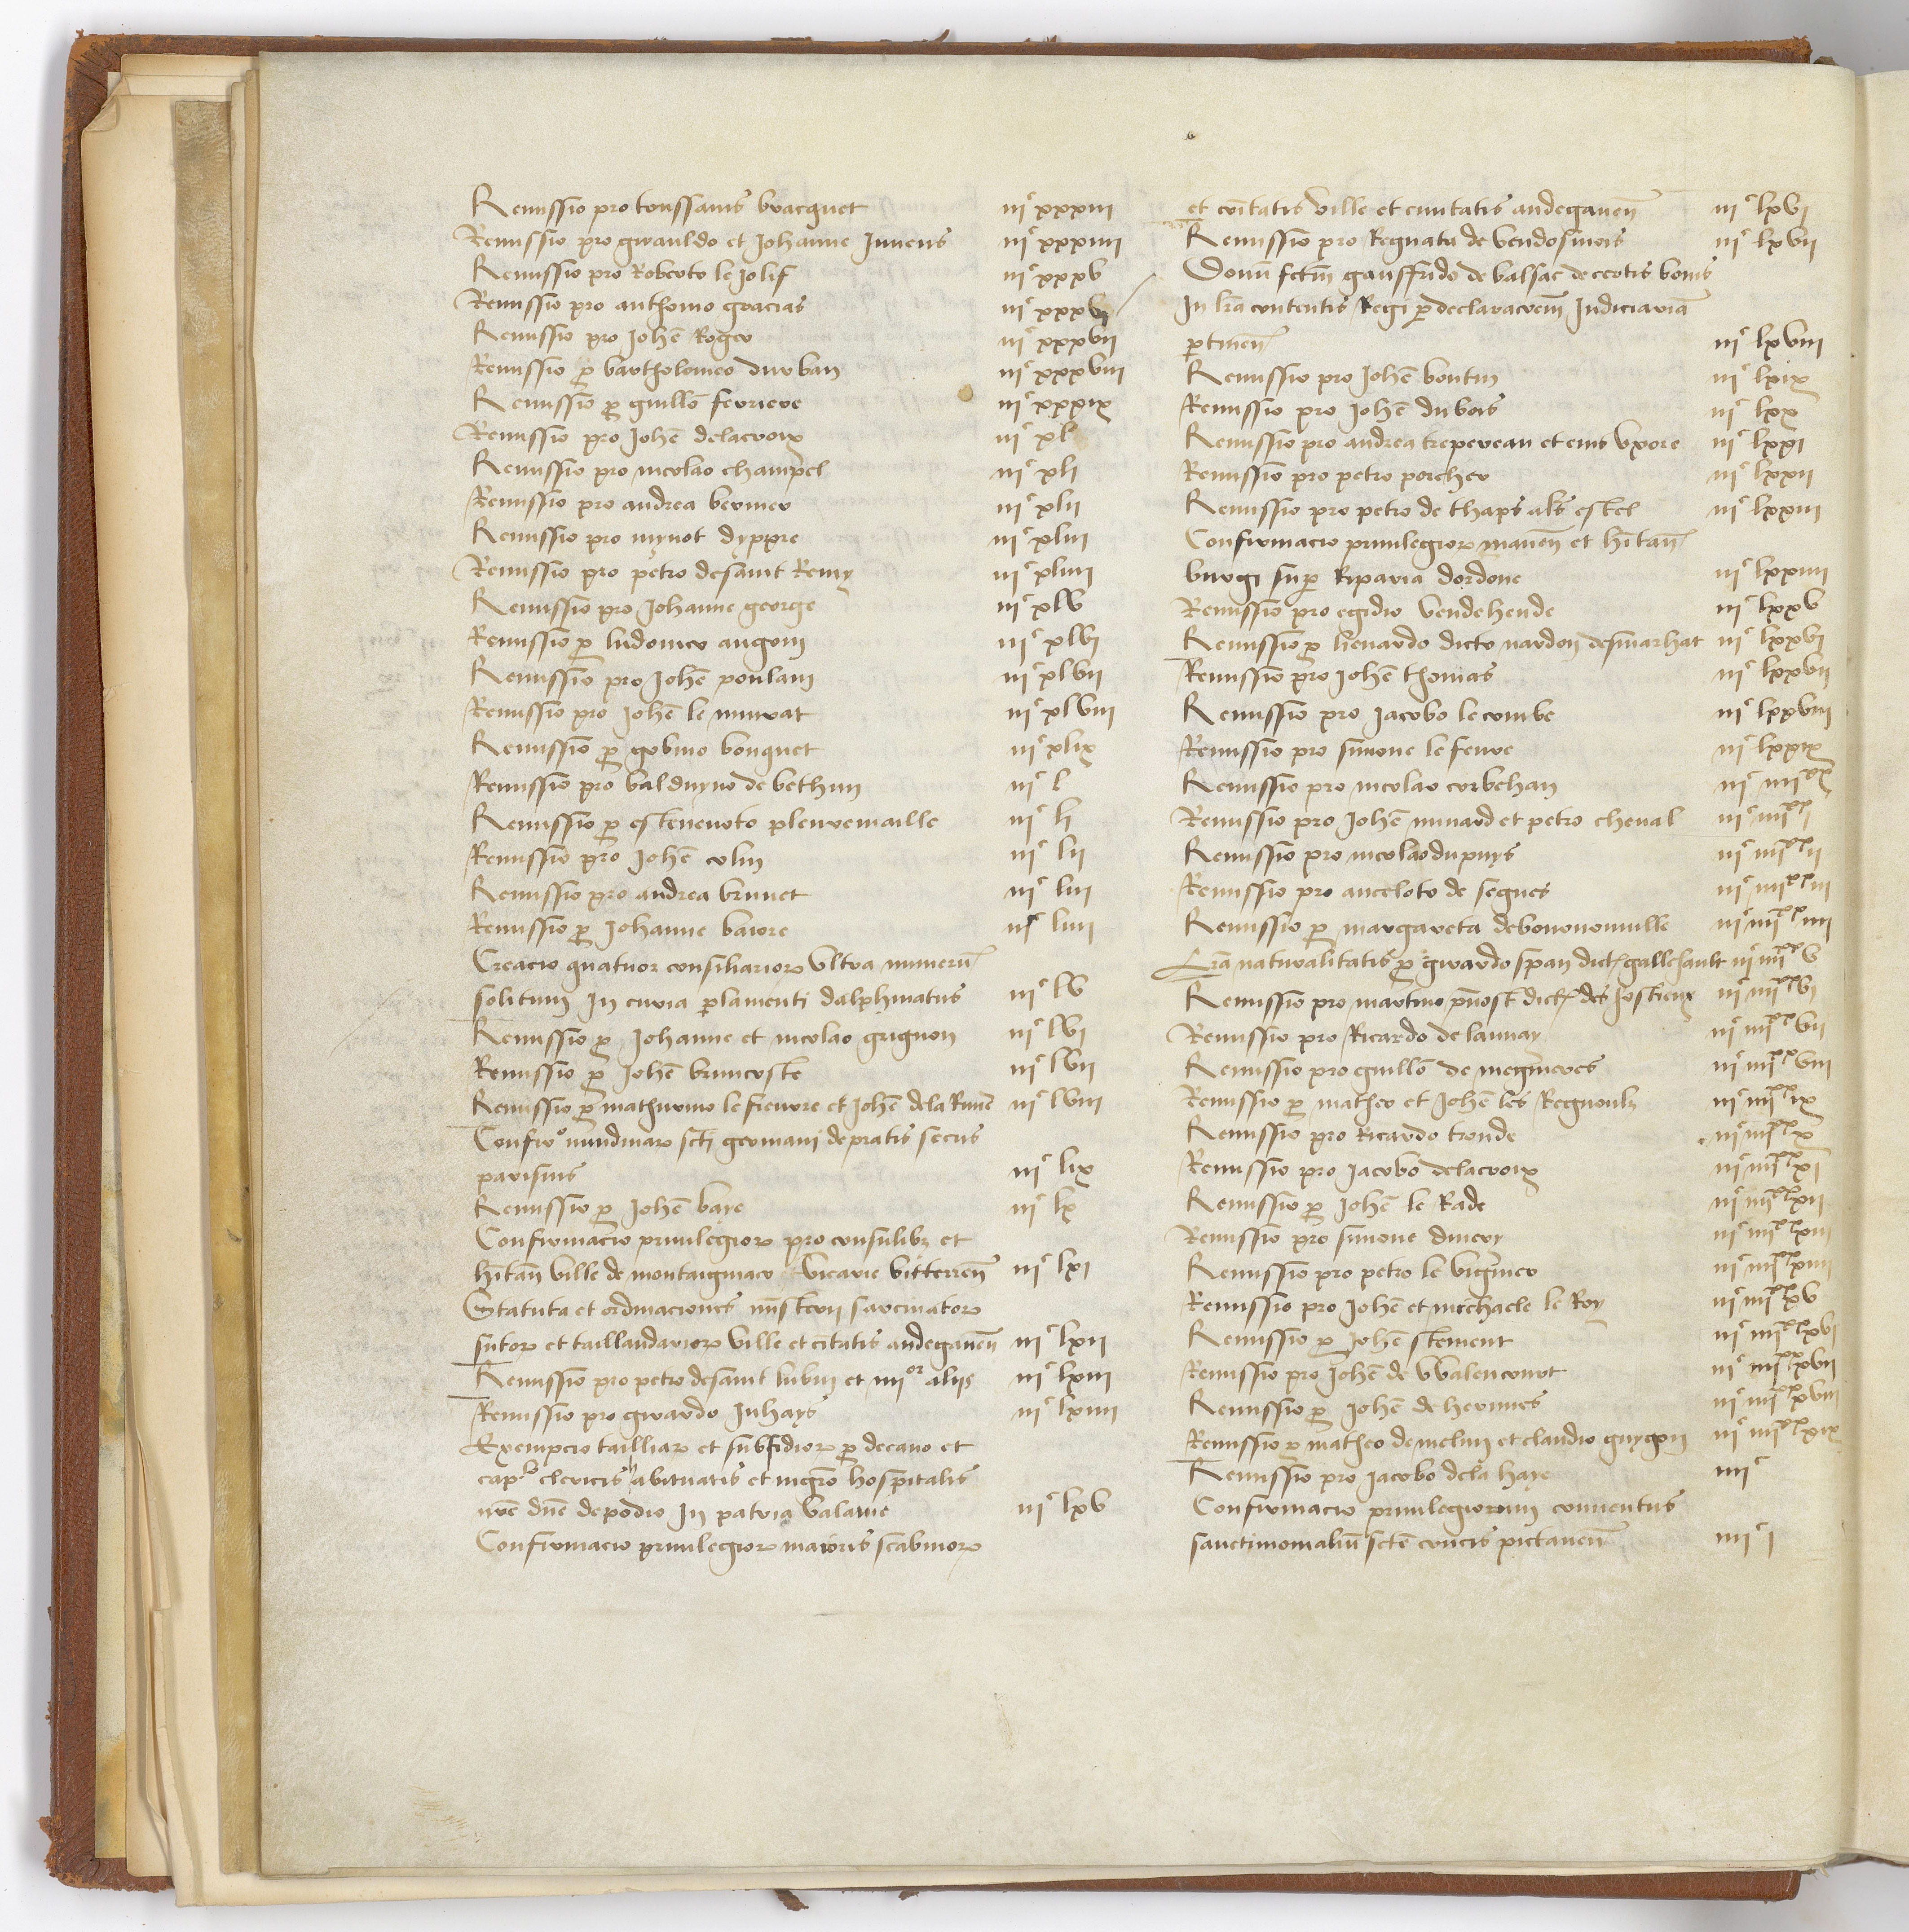 Remissio pro toussanis bracquet iiiᶜ xxxiii
Remissio pro girauldo et Johanne Juvenis iiiᶜ xxxiiii
Remissio pro Roberto le Jolif iiiᶜ xxxv
Remissio pro anthonio gracias iiiᶜ xxxvj
Remissio pro Johēe Roger iiiᶜ xxxvii
Remissio ꝑ bartholomeo durban iiiᶜ xxxviii
Remissio ꝑ guillō ferriere iiiᶜ xxxix
Remissio pro Johēe delacroix iiiᶜ xl
Remissio pro nicolao champel iiiᶜ xli
Remissio pro andrea bernier iiiᶜ xlii
Remissio pro mynot dyppre iiiᶜ xliii
Remissio pro petro desaint Remy iiiᶜ xliiii
Remissio pro Johanne george iiiᶜ xlv
Remissio ꝑ ludovico angoin iiiᶜ xlvi
Remissio pro Johēe poulain iiiᶜ xlvii
Remissio pro Johēe le murat iiiᶜ xlviii
Remissio ꝑ gobino bouquet iiiᶜ xlix
Remissio pro balduyno de bethun iiiᶜ l
Remissio ꝑ estevenoto pleuremaille iiiᶜ li
Remissio pro Johēe colin iiiᶜ lii
Remissio pro andrea brunet iiiᶜ liii
Remissio ꝑ Johanne baiore iiiᶜ liiii
Creacio quatuor consiliarioꝝ ultra numerū
solitum in curia ꝑlamenti dalphinatus iiiᶜ lv
Remissio ꝑ Johanne et nicolao grignon iiiᶜ lvi
Remissio ꝑ Johēe bruncoste iiiᶜ lvii
Remissio ꝑ mathurino le fieuvre et Johēe dela Rue iiiᶜ lviii
Confirᵒ nundinaꝝ scti germani depratis secus
parisius iiiᶜ lix
Remissio ꝑ Johēe baye iiiᶜ lx
Confirmacio privilegioꝝ pro consulibꝫ et
hītan ville de montaigniaco vicarie bitterreñ iiiᶜ lxi
Statuta et ordinaciones misterii sarcinatoꝝ
sutoꝝ et taillandarioꝝ ville et citatis andegaveñ iiiᶜ lxii
Remissio pro petro desaint lubin et iiiiᵒʳ aliis iiiᶜ lxiii
Remissio pro girardo Juhays iiiᶜ lxiiii
Exempcio talliaꝝ et subsidioꝝ ꝑ decano et
capˡᵒ clericis habituatis et mēgro hospitalis
nrē dnē depodio in patria valavie iiiᶜ lxv
Confirmacio privilegioꝝ maioris scabinoꝝ
et cōitatis ville et civitatis andegaveñ iiiᶜ lxvi
Remissio pro Regnata de vendosmois iiiᶜ lxvii
Donū fctm gauffrido de balsac de certis bonis
in lrā contentis Regi ꝑ declaracōem Judiciariā
ꝑtineñ iiiᶜ lxviii
Remissio pro Johēe bontin iiiᶜ lxix
Remissio pro Johēe dubois iiiᶜ lxx
Remissio pro andrea trepereau et eius uxore iiiᶜ lxxi
Remissio pro petro porcher iiiᶜ lxxii
Remissio pro petro de thaps als estel iiiᶜ lxxiii
Confirmacio privilegioꝝ maneñ et hītañ
burgi suꝑ Riparia dordone iiiᶜ lxxiiii
Remissio pro egidio vendehende iiiᶜ lxxv
Remissio ꝑ lienardo dicto nardon desmarhat iiiᶜ lxxvi
Remissio pro Johēe thomas iiiᶜ lxxvii
Remissio pro Jacobo le combe iiiᶜ lxxviii
Remissio pro simone le fevre iiiᶜ lxxix
Remissio pro nicolao corbehan iiiᶜ iiiiˣˣ
Remissio pro Johēe minard et petro cheval iiiᶜ iiiiˣˣ i
Remissio pro nicolao dupuys iiiᶜ iiiiˣˣ ii
Remissio pro anceloto de segues iiiᶜ iiiiˣˣ iii
Remissio ꝑ margareta debononomille iiiᶜ iiiiˣˣ iiii
Lrā naturalitatis ꝑ girardo span dict gallehault iiiᶜ iiiiˣˣ v
Remissio pro martino pvost dict des Jostieux iiiᶜ iiiiˣˣ vi
Remissio pro Ricardo de launay iiiᶜ iiiiˣˣ vii
Remissio pro guillō de megnieres iiiᶜ iiiiˣˣ viii
Remissio ꝑ matheo et Johēe les Regnoulx iiiᶜ iiiiˣˣ ix
Remissio pro Ricardo tronde iiiᶜ iiiiˣˣ x
Remissio pro Jacobo delacroix iiiᶜ iiiiˣˣ xi
Remissio ꝑ Johēe le Rade iiiᶜ iiiiˣˣ xii
Remissio pro simone divery iiiᶜ iiiiˣˣ xiii
Remissio pro petro le vignier iiiᶜ iiiiˣˣ xiiii
Remissio pro Johēe et michaele le Roy iiiᶜ iiiiˣˣ xv
Remissio ꝑ Johēe stement iiiᶜ iiiiˣˣ xvi
Remissio pro Johēe de Walencourt iiiᶜ iiiiˣˣ xvii
Remissio ꝑ Johēe de hermes iiiᶜ iiiiˣˣ xviii
Remissio ꝑ matheo de melun et claudio guygon iiiᶜ iiiiˣˣ xix
Remissio pro Jacobo dela haye iiiiᶜ
Confirmacio privilegiorum conventus
sanctimonialiū scte crucis pictaveñ iiiiᶜ i